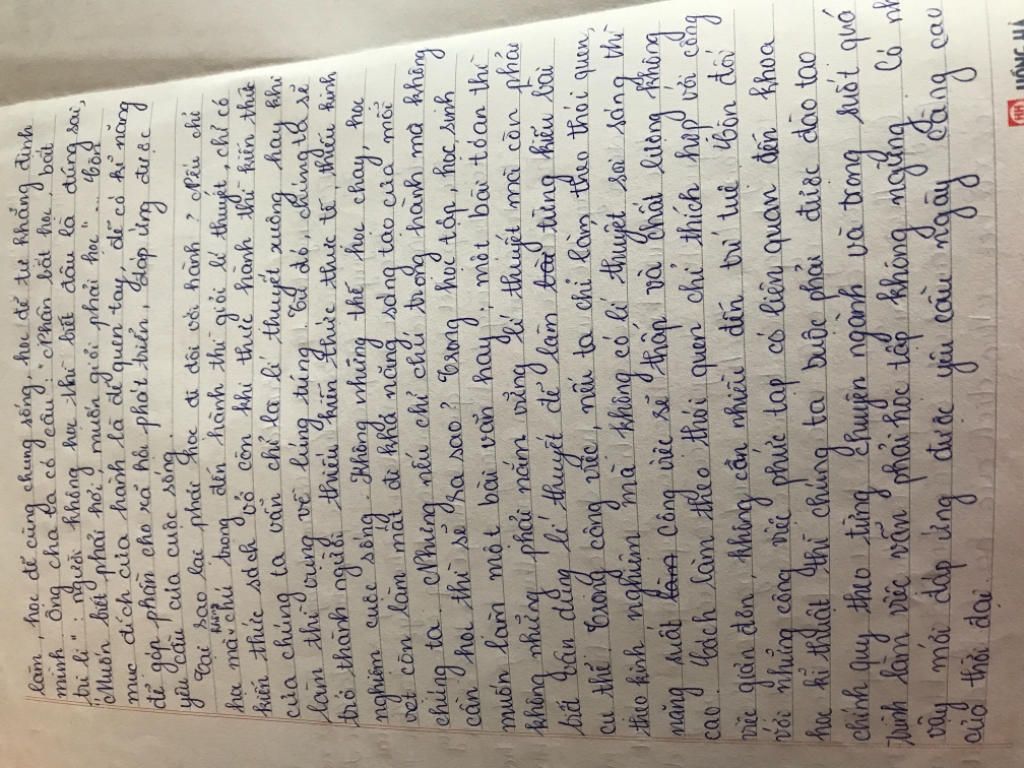 làm, học để cùng chung sống, học để tự khẳng định
mình". Ông cha ta có câu: "Nhân bất học, bất
tri lí": người không học thì biết đâu là đúng sai,
"Muốn biết phải hỏi, muốn giỏi phải học"... Còn
mục đích của hành là để quen tay, để có kĩ năng
để góp phần cho xã hội phát triển, đáp ứng được
yêu cầu của cuộc sống.
Tại sao lại phải học đi đôi với hành? Nếu chỉ
học mà không chú trọng đến hành thì giỏi lí thuyết, chỉ có
kiến thức sách vở còn khi thực hành thì kiến thức
của chúng ta vẫn chỉ là lí thuyết xuông hay khi
làm thì vụng về lúng túng. Từ đó, chúng ta sẽ
trở thành người thiếu kiến thức thực tế, thiếu kinh
nghiệm cuộc sống. Không những thế học chay, học
vẹt còn làm mất đi khả năng sáng tạo của mỗi
chúng ta. Nhưng nếu chỉ chú trọng hành mà không
cần học thì sẽ ra sao? Trong học tập, học sinh
muốn làm một bài văn hay, một bài toán thì
không những phải nắm vững lí thuyết mà còn phải
biết vận dụng lí thuyết để làm bài từng kiểu bài
cụ thể. Trong công việc, nếu ta chỉ làm theo thói quen,
theo kinh nghiệm mà không có lí thuyết soi sáng thì
năng suất làm công việc sẽ thấp và chất lượng không
cao. Cách làm theo thói quen chỉ thích hợp với công
việc giản đơn, không cần nhiều đến trí tuệ. Còn đối
với những công việc phức tạp có liên quan đến khoa
học kĩ thuật thì chúng ta buộc phải được đào tạo
chính quy theo từng chuyên ngành và trong suốt quá
trình làm việc vẫn phải học tập không ngừng. Có nh
vậy mới đáp ứng được yêu cầu ngày càng cao
của thời đại.
HH HỒNG HÀ